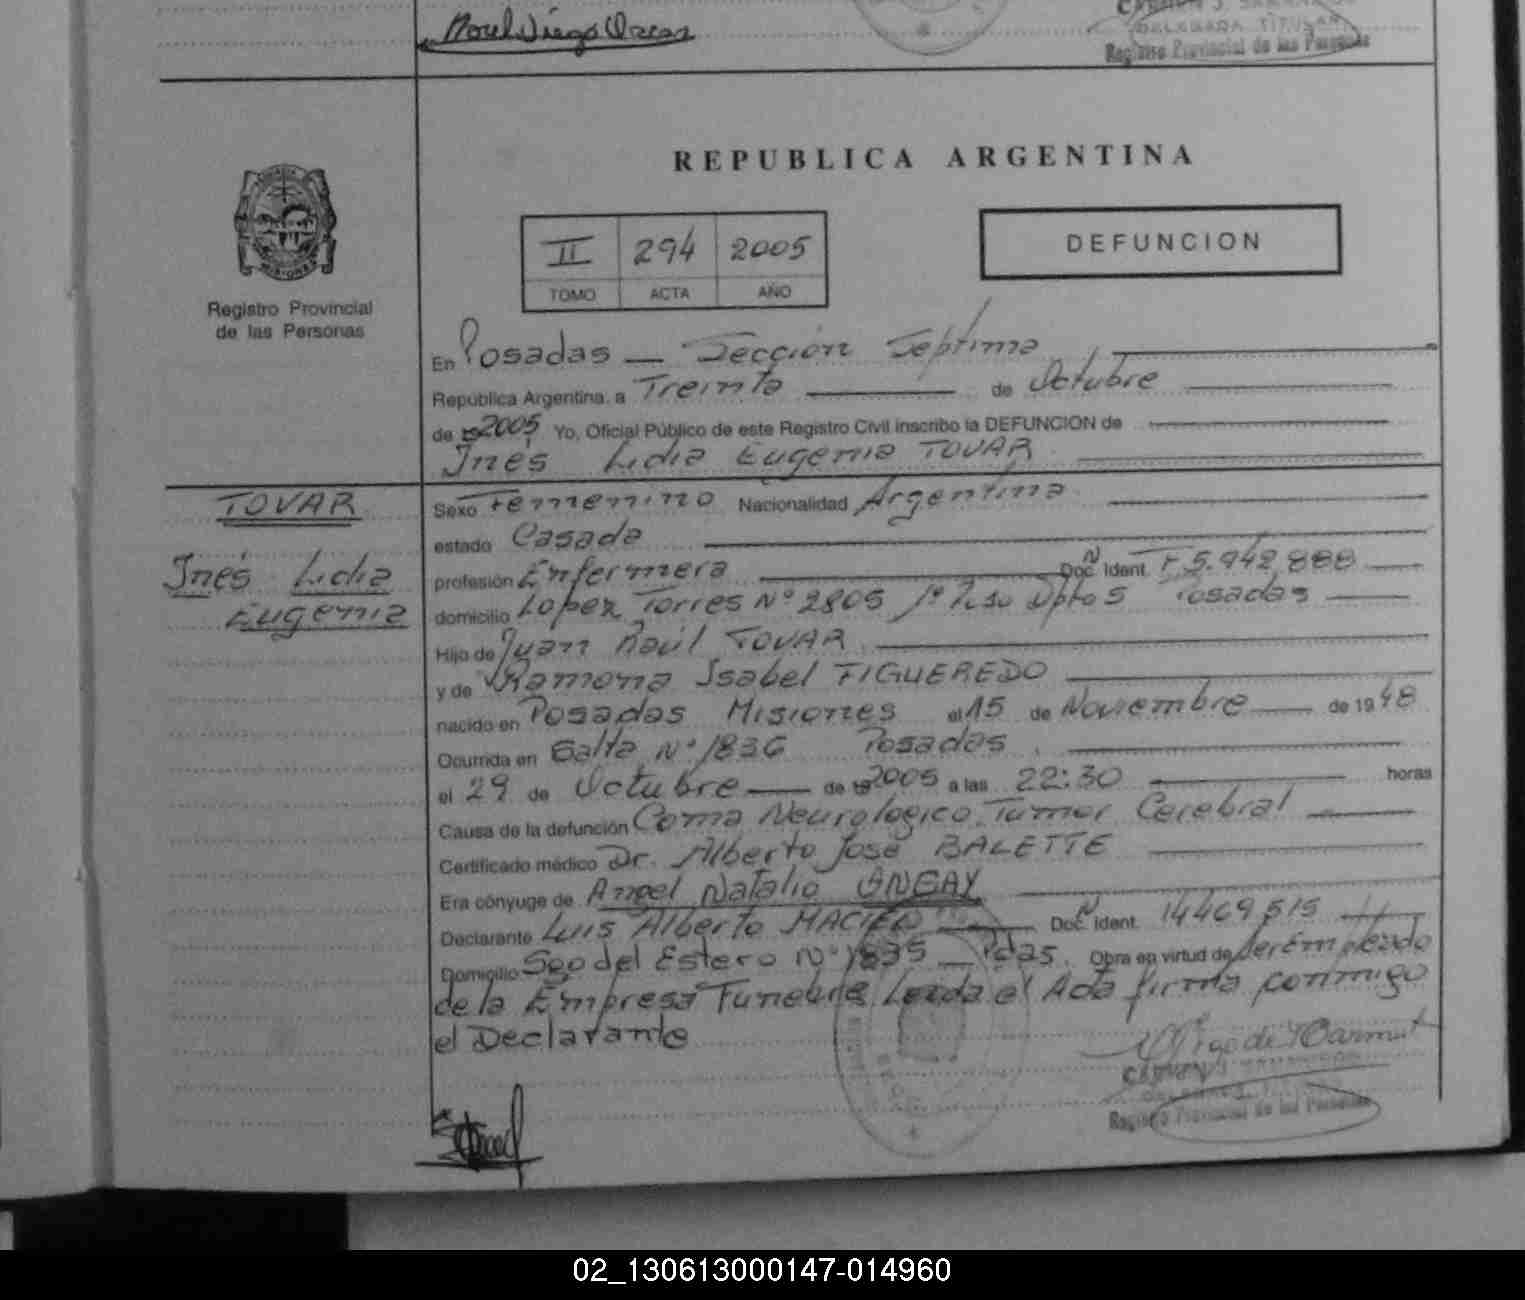 DELEGADA TITULAR
Registro Provincial de las Personas
REPUBLICA ARGENTINA
II 294 2005
TOMO ACTA AÑO
DEFUNCION
MISIONES
Registro Provincial
de las Personas
En Posadas — Sección Septima
Republica Argentina, a Treinta de Octubre
de 19 2005 Yo, Oficial Público de este Registro Civil inscribo la DEFUNCION de
Inés Lidia Eugenia TOVAR
TOVAR
Inés Lidia
Eugenia
Sexo Femenino Nacionalidad Argentina
estado Casada
profesión Enfermera Doc. Ident. N F 5.942.888
domicilio Lopez Torres Nº 2805 1º Piso Dpto 5 Posadas
Hijo de Juan Raúl TOVAR
y de Ramona Isabel FIGUEREDO
nacido en Posadas Misiones el 15 de Noviembre de 1948
Ocurrida en Salta Nº 1836 Posadas
el 29 de Octubre de 19 2005 a las 22:30 horas
Causa de la defunción Coma Neurologico. Tumor Cerebral
Certificado médico Dr. Alberto José BALETTE
Era cónyuge de Angel Natalio
Declarante Luis Alberto MACIEL Doc. Ident. N 14469515
Domicilio Sgo del Estero Nº 1835 — Pdas. Obra en virtud de ser Empleado
de la Empresa Funebre Leida el Acta firma conmigo
el Declarante
CARMEN
Registro Provincial de las Personas
02_130613000147-014960